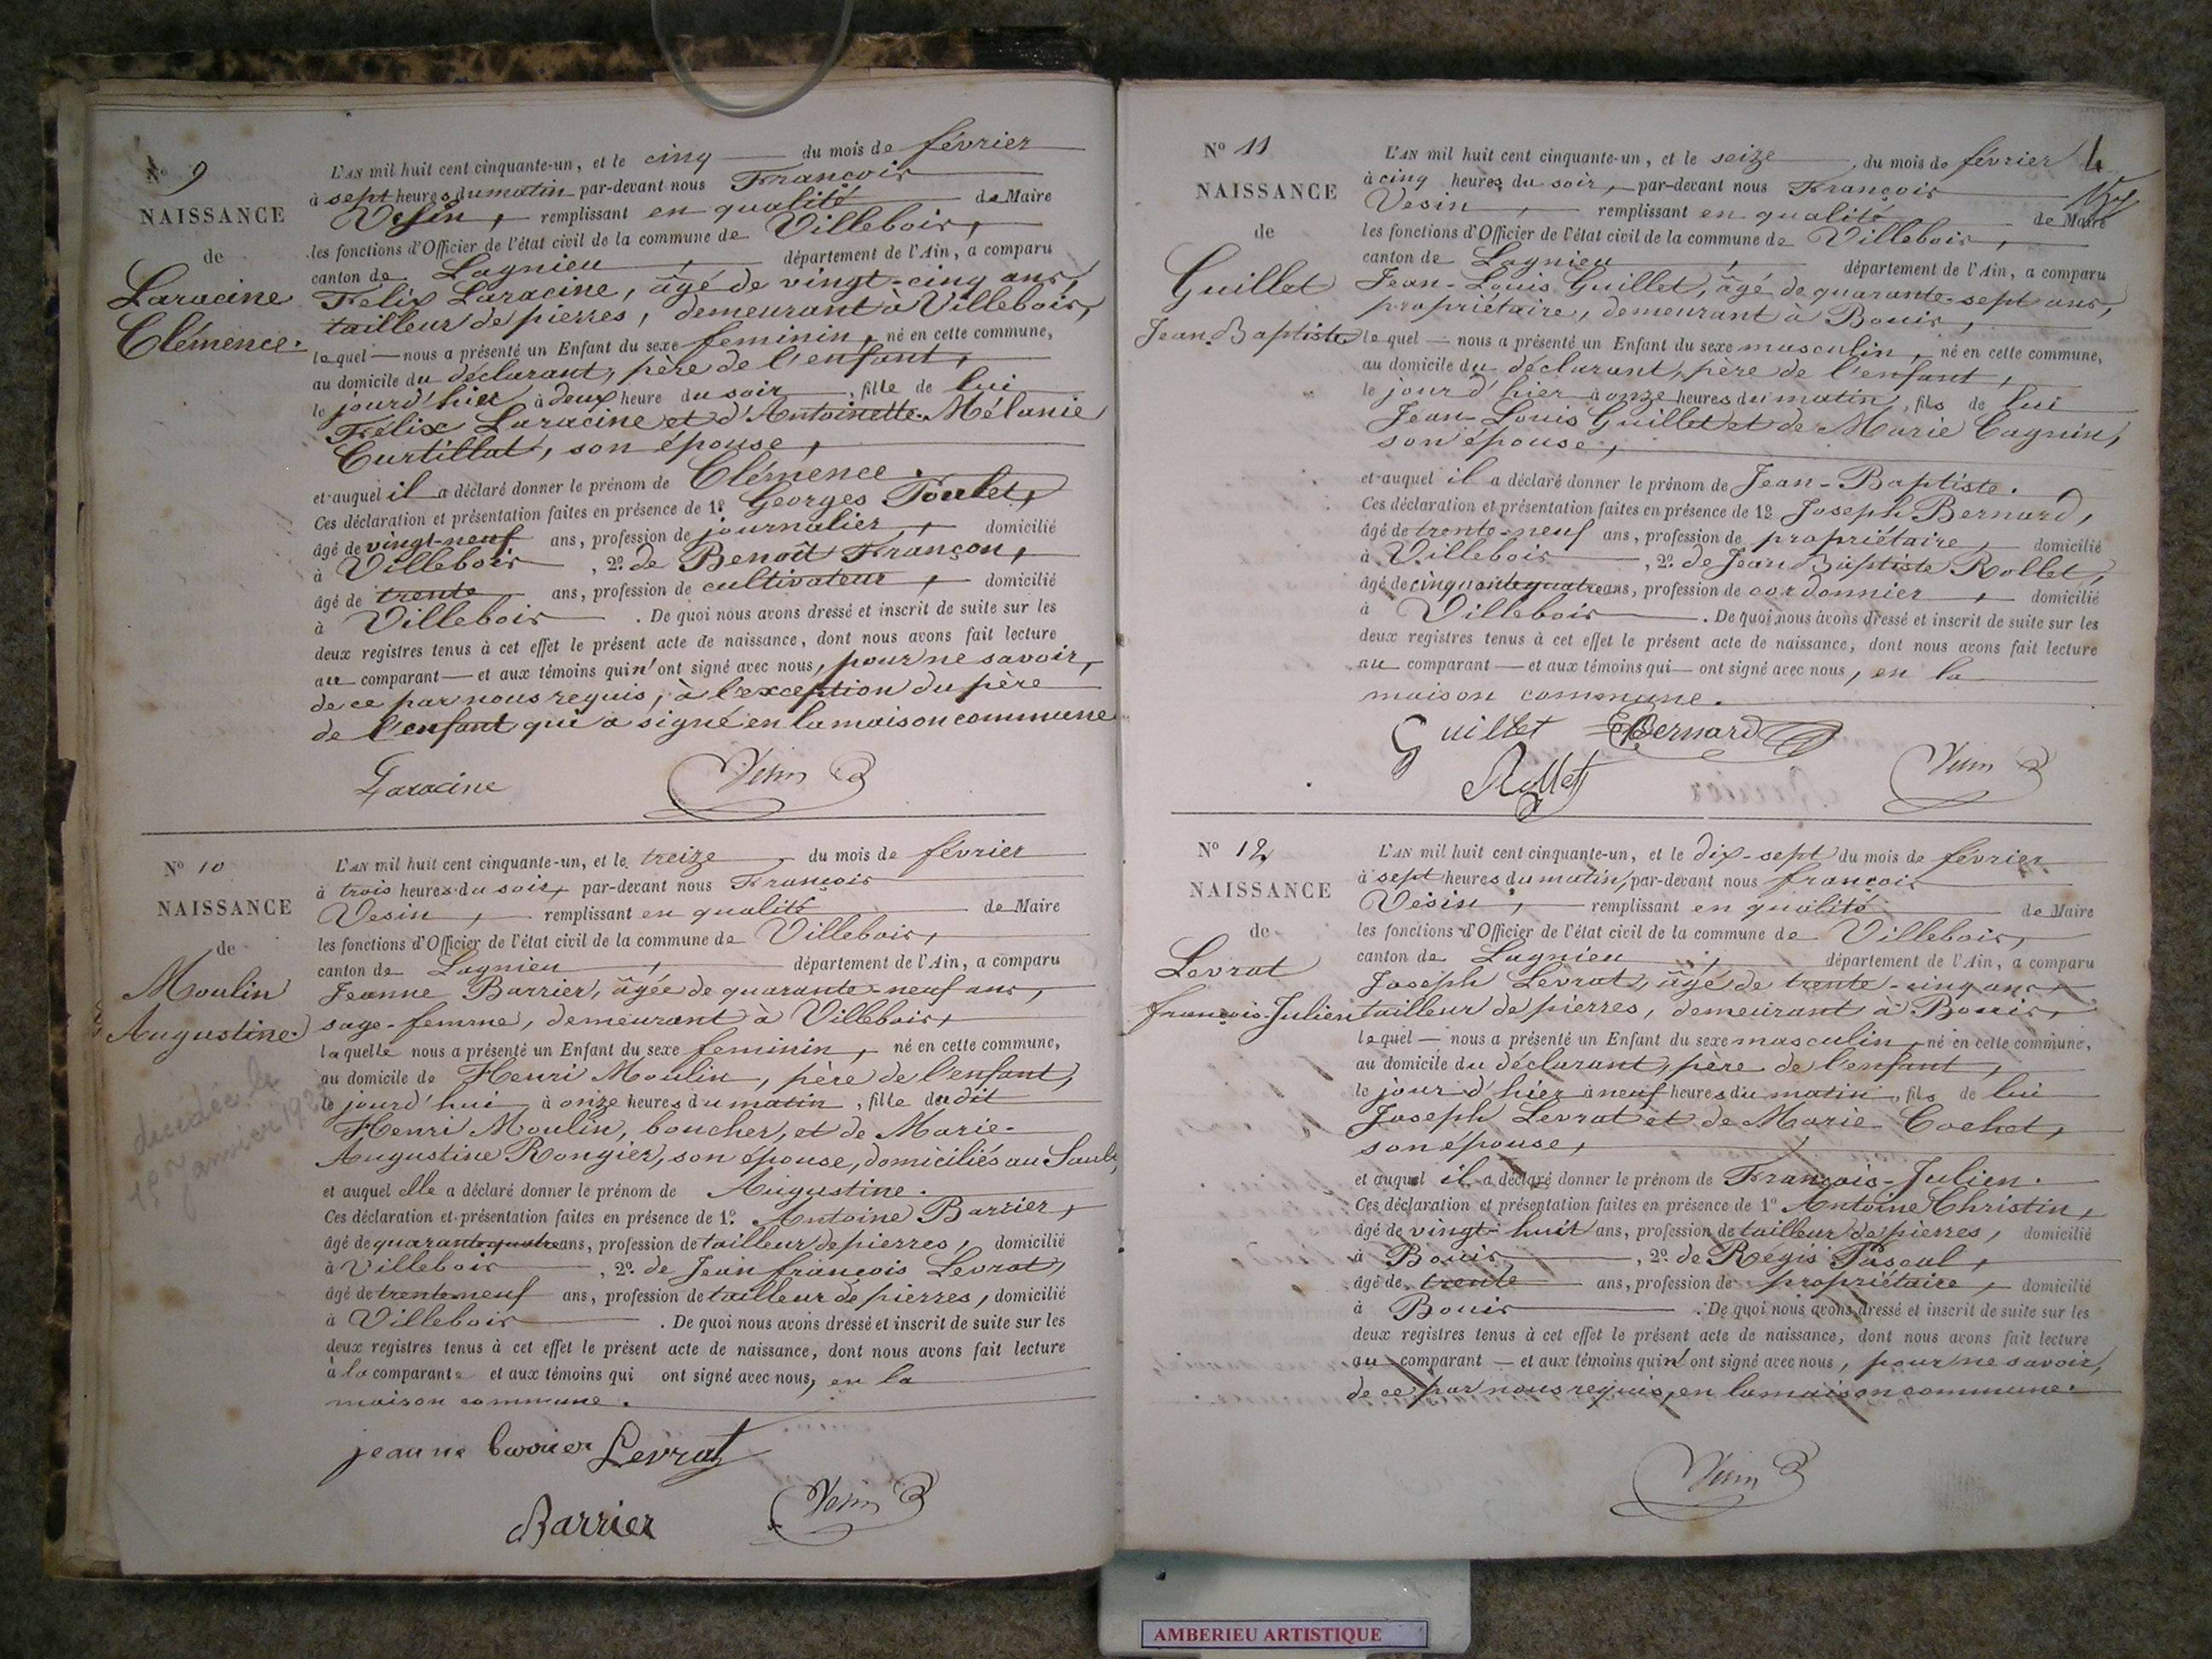 N° 9
NAISSANCE
de
Laracine
Clémence.
L'AN mil huit cent cinquante-un, et le cinq du mois de février
à sept heures du matin par-devant nous François
Vesin, remplissant en qualité de Maire
les fonctions d'Officier de l'état civil de la commune de Villebois,
canton de Lagnieu, département de l'Ain, a comparu
Félix Laracine, âgé de vingt-cinq ans,
tailleur de pierres, demeurant à Villebois,
lequel nous a présenté un Enfant du sexe feminin, né en cette commune,
au domicile du déclarant, père de l'enfant,
le jourd'hier à deux heure du soir, fille de lui
Félix Laracine et d'Antoinette-Mélanie
Curtillat, son épouse,
et auquel il a déclaré donner le prénom de Clémence.
Ces déclaration et présentation faites en présence de 1° Georges Poulet,
âgé de vingt-neuf ans, profession de journalier, domicilié
à Villebois, 2° de Benoît Françon,
âgé de trente ans, profession de cultivateur, domicilié
à Villebois. De quoi nous avons dressé et inscrit de suite sur les
deux registres tenus à cet effet le présent acte de naissance, dont nous avons fait lecture
au comparant et aux témoins qui n'ont signé avec nous, pour ne savoir,
de ce par nous requis, à l'exception du père
de l'enfant qui a signé en la maison commune
Laracine Vesin
N° 10
NAISSANCE
de
Moulin
Augustine.
décédée le
1er janvier
L'AN mil huit cent cinquante-un, et le treize, du mois de février
à trois heures du soir, par-devant nous François
Vesin, remplissant en qualité de Maire
les fonctions d'Officier de l'état civil de la commune de Villebois,
canton de Lagnieu, département de l'Ain, a comparu
Jeanne Barrier, âgée de quarante-neuf ans,
sage-femme, demeurant à Villebois,
laquelle nous a présenté un Enfant du sexe feminin, né en cette commune,
au domicile de Henri Moulin, père de l'enfant,
le jourd'hui à onze heures du matin, fille dudit
Henri Moulin, boucher, et de Marie-
Augustine Rongier, son épouse, domiciliés au Sault,
et auquel elle a déclaré donner le prénom de Augustine.
Ces déclaration et présentation faites en présence de 1° Antoine Barrier,
âgé de quarante quatre ans, profession de tailleur de pierres, domicilié
à Villebois, 2° de Jean françois Levrat,
âgé de trente neuf ans, profession de tailleur de pierres, domicilié
à Villebois. De quoi nous avons dressé et inscrit de suite sur les
deux registres tenus à cet effet le présent acte de naissance, dont nous avons fait lecture
à la comparante et aux témoins qui ont signé avec nous, en la
maison commune.
jeanne barrier Levrat
Barrier Vesin
4
N° 11
NAISSANCE
de
Guillet
Jean-Baptiste
L'AN mil huit cent cinquante-un, et le seize, du mois de février
à cinq heures du soir, par-devant nous François
Vesin, remplissant en qualité de Maire
les fonctions d'Officier de l'état civil de la commune de Villebois,
canton de Lagnieu, département de l'Ain, a comparu
Jean-Louis Guillet, âgé de quarante-sept ans,
propriétaire, demeurant à Bouis,
lequel nous a présenté un Enfant du sexe masculin, né en cette commune,
au domicile du déclarant, père de l'enfant,
le jourd'hier à onze heures du matin, fils de lui
Jean-Louis Guillet et de Marie Cagnin,
son épouse,
et auquel il a déclaré donner le prénom de Jean-Baptiste.
Ces déclaration et présentation faites en présence de 1° Joseph Bernard,
âgé de trente-neuf ans, profession de propriétaire, domicilié
à Villebois, 2° de Jean Baptiste Rollet,
âgé de cinquante quatre ans, profession de cordonnier, domicilié
à Villebois. De quoi nous avons dressé et inscrit de suite sur les
deux registres tenus à cet effet le présent acte de naissance, dont nous avons fait lecture
au comparant et aux témoins qui ont signé avec nous, en la
maison commune.
Guillet Bernard
Rollet Vesin
N° 12
NAISSANCE
de
Levrat
françois-Julien
L'AN mil huit cent cinquante-un, et le dix-sept du mois de février
à sept heures du matin, par-devant nous françois
Vesin, remplissant en qualité de Maire
les fonctions d'Officier de l'état civil de la commune de Villebois,
canton de Lagnieu, département de l'Ain, a comparu
Joseph Levrat, âgé de trente-cinq ans,
tailleur de pierres, demeurant à Bouis,
lequel nous a présenté un Enfant du sexe masculin, né en cette commune,
au domicile du déclarant, père de l'enfant,
le jour d'hier à neuf heures du matin, fils de lui
Joseph Levrat et de Marie Cochet,
son épouse,
et auquel il a déclaré donner le prénom de François-Julien.
Ces déclaration et présentation faites en présence de 1° Antoine Christin,
âgé de vingt-huit ans, profession de tailleur de pierres, domicilié
à Bouis, 2° de Régis Pascal,
âgé de trente ans, profession de propriétaire, domicilié
à Bouis. De quoi nous avons dressé et inscrit de suite sur les
deux registres tenus à cet effet le présent acte de naissance, dont nous avons fait lecture
au comparant et aux témoins qui n'ont signé avec nous, pour ne savoir,
de ce par nous requis, en la maison commune.
Vesin
AMBERIEU ARTISTIQUE